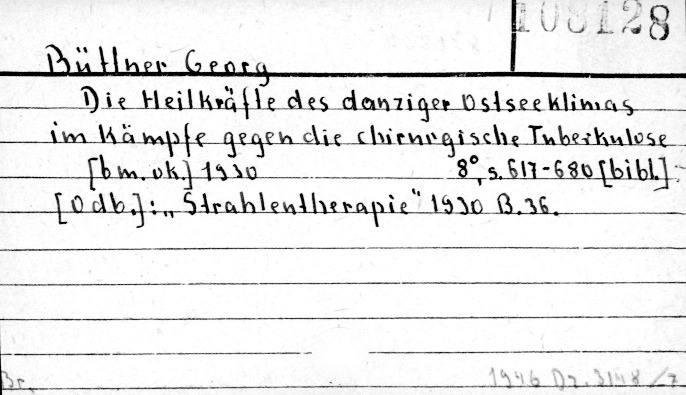 108128
Büttner Georg
Die Heilkräfte des danziger Ostseeklimas
im Kämpfe gegen die chirurgische Tuberkulose
[b m. ok.] 1930 8°, s. 617-680 [bibl.]
[Odb.]: „Strahlentherapie" 1930 B. 36.
Br. 1946 Dz. 3148/7